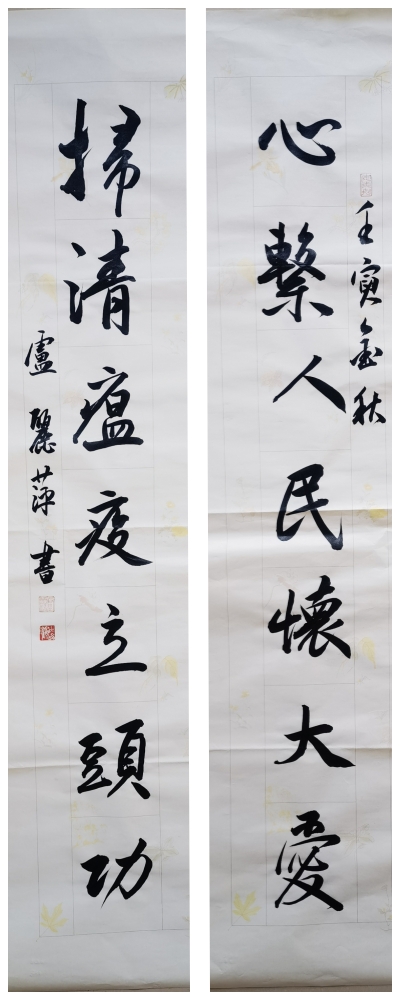 壬寅金秋
心繫人民懷大愛
掃清瘟疫立頭功
盧麗萍書